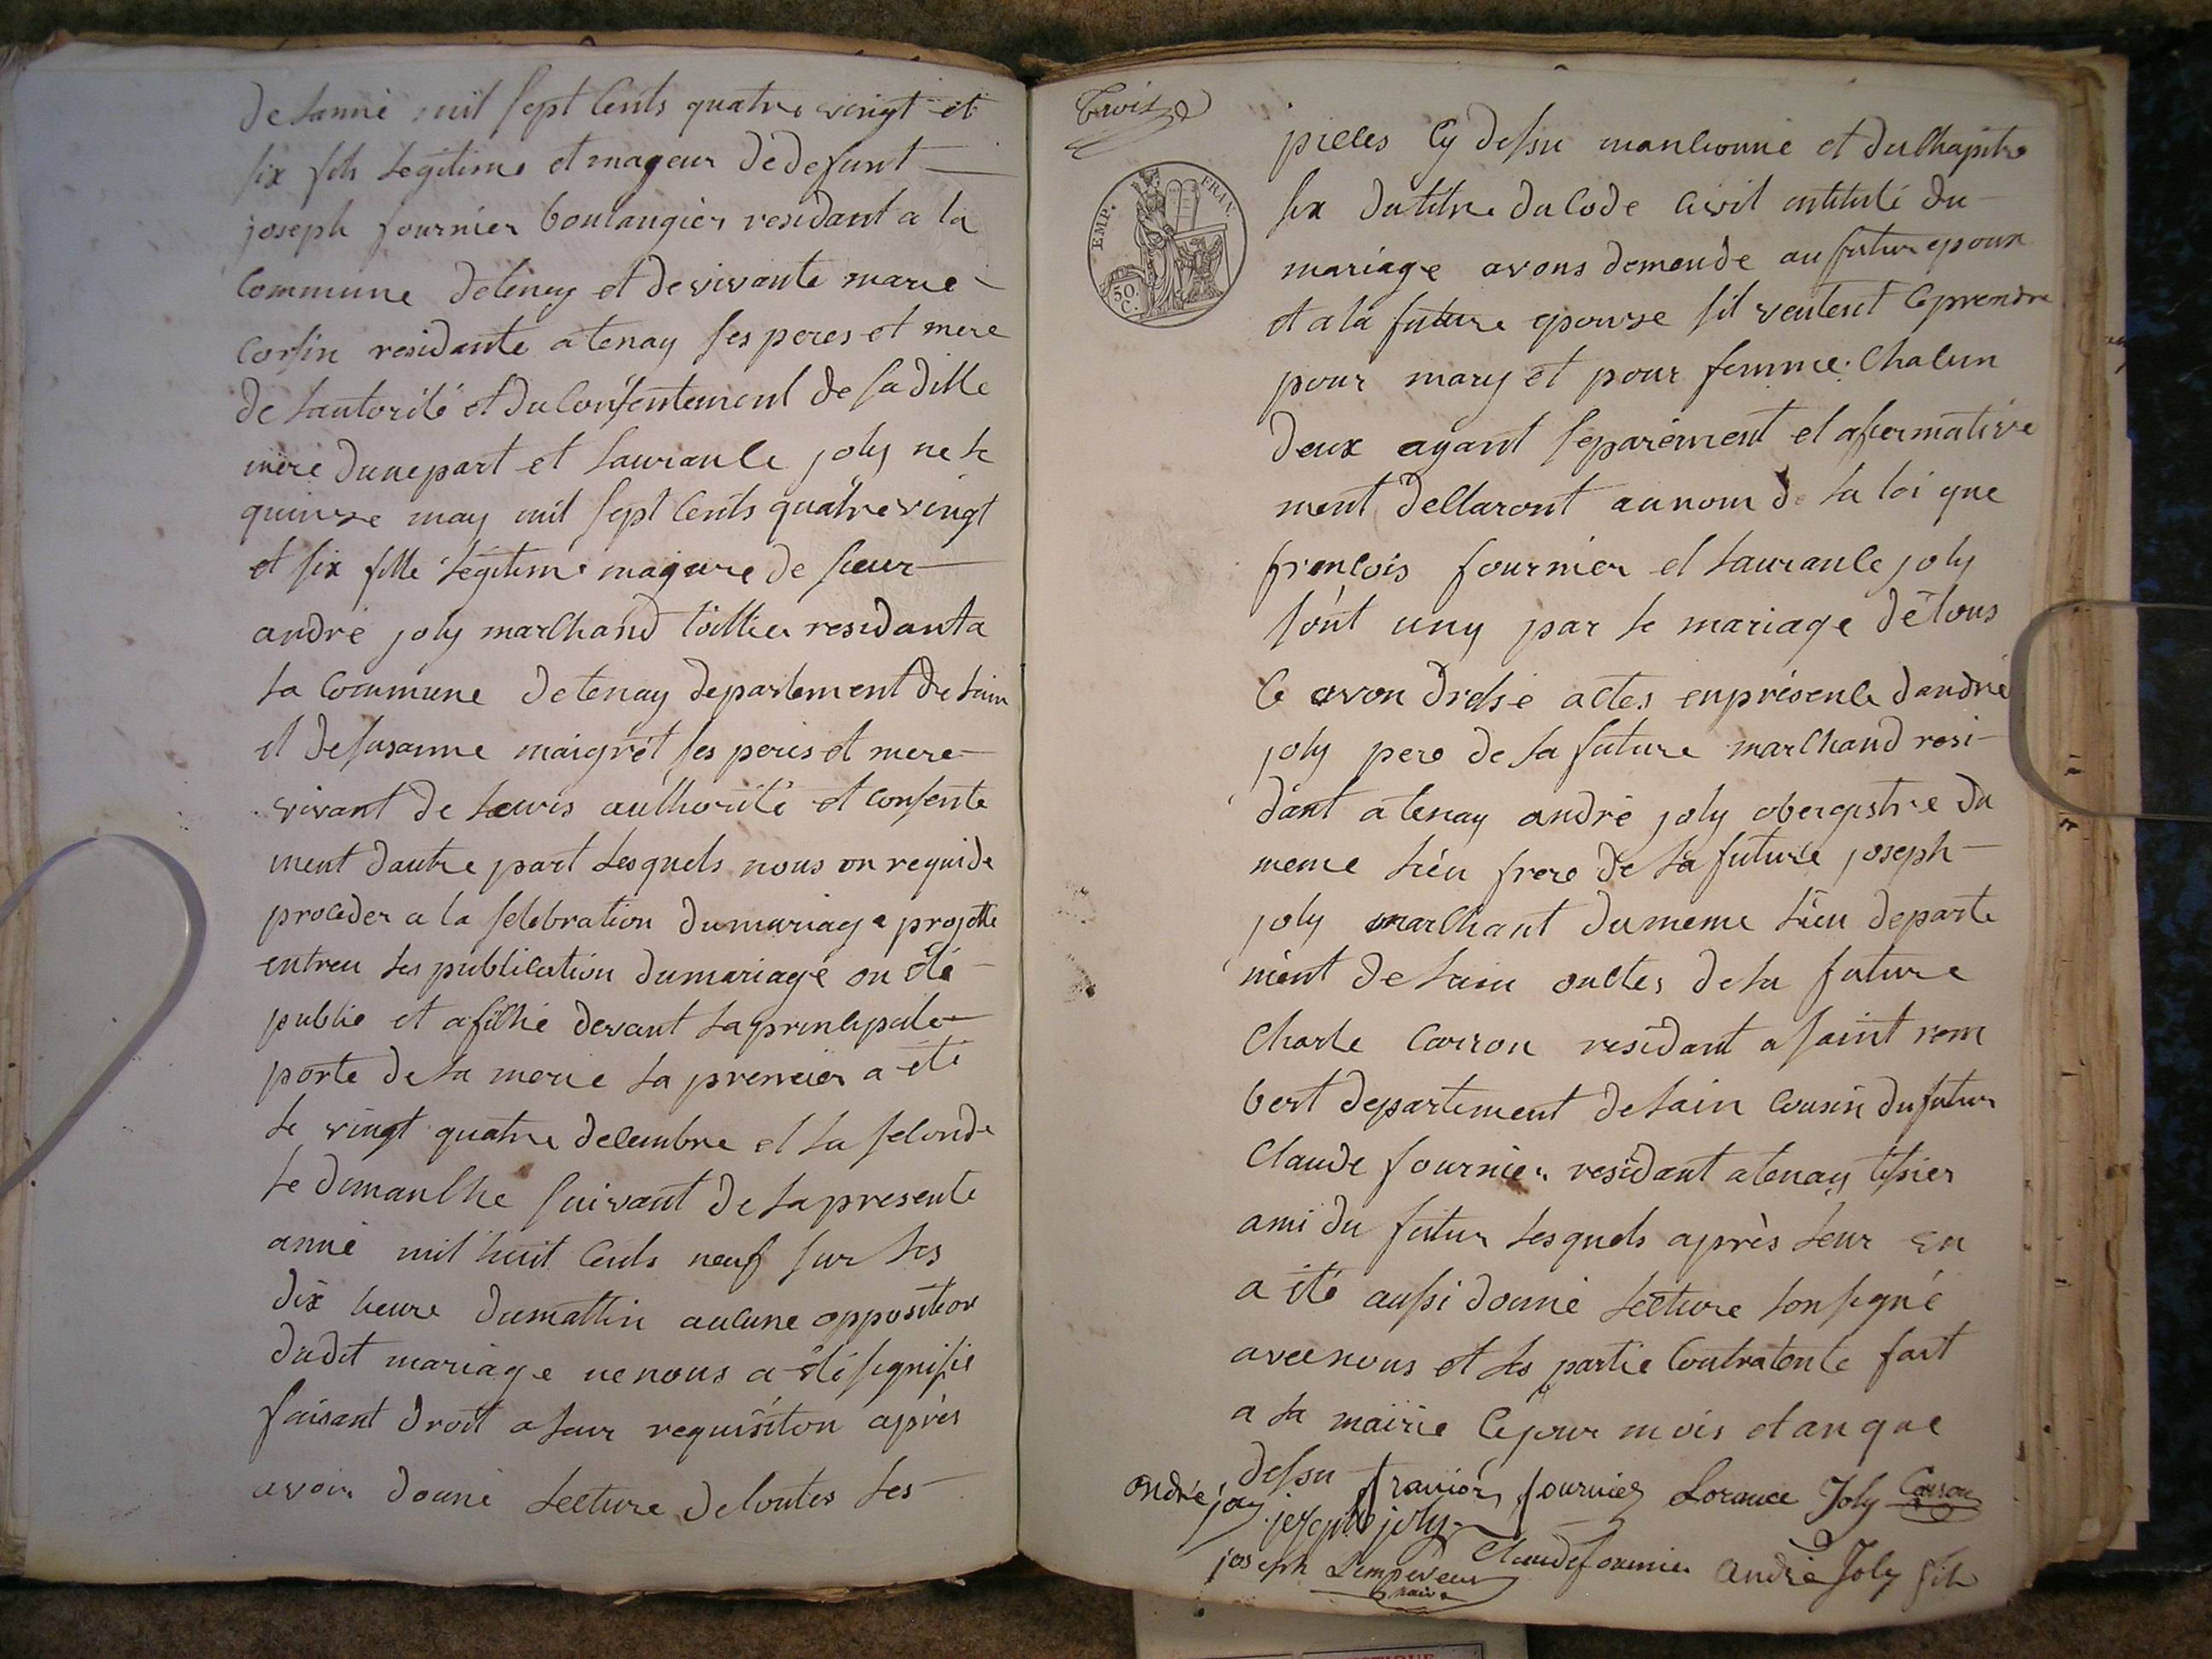 de lanné mil sept cents quatre vingt et
six fils legitime et mageur de defunt
joseph fournier boulangier residant a la
commune de teney et de vivante marie
corsin residante a tenay ses peres et mere
de lautorité et du consentement de sa ditte
mere dune part et laurance joly ne le
quinze may mil sept cents quatre vingt
et six fille legitime mageure de sieur
andré joly marchand toillier residant a
la commune de tenay departement de lain
et de susanne maigret ses peres et mere
vivant de leurs authorité et consente
ment dautre part lesquels nous on requi de
proceder a la selebration du mariage projotte
entreu les publication du mariage on été
publié et afiché devant la principale
porte de la merie la premeier a été
le vingt quatre decembre et la seconde
le dimanche suivant de la presente
anné mil huit cents neuf sur les
dix heure du mattin aucune opposition
dudit mariage ne nous a été signifié
faisant droit a leur requisiton après
avoir donné lecture de toutes les
troize
EMP. FRAN.
50. C.
pieces cy dessu mancionné et du chapitre
six du titre du code civil intitulé du
mariage avons demendé au futur epoux
et a la future epouse sil veulent ce prendre
pour mary et pour femme chacun
deux ayant separément et afermative
ment declaront au nom de la loi que
francois fournier et laurance joly
sont uny par le mariage de tous
ce avon dréssé actes en présence dandré
joly pere de la future marchand resi
dant a tenay andré joly obergistre du
meme lieu frere de la future joseph
joly marchant du meme lieu departe
ment de lain oncles de la future
Charle Carron residant a saint rem
bert departement de lain cousin du futur
Claude fournier residant a tenay tissier
ami du futur lesquels après leur en
a été aussi donné lecture lon signé
avec nous et les partie contratente fait
a la mairie ce jour mois et an que
dessu francois fournier Lorance Joly Carron
andré joly joseph joly
joseph Lempereur Claude fournier André Joly fils
maire